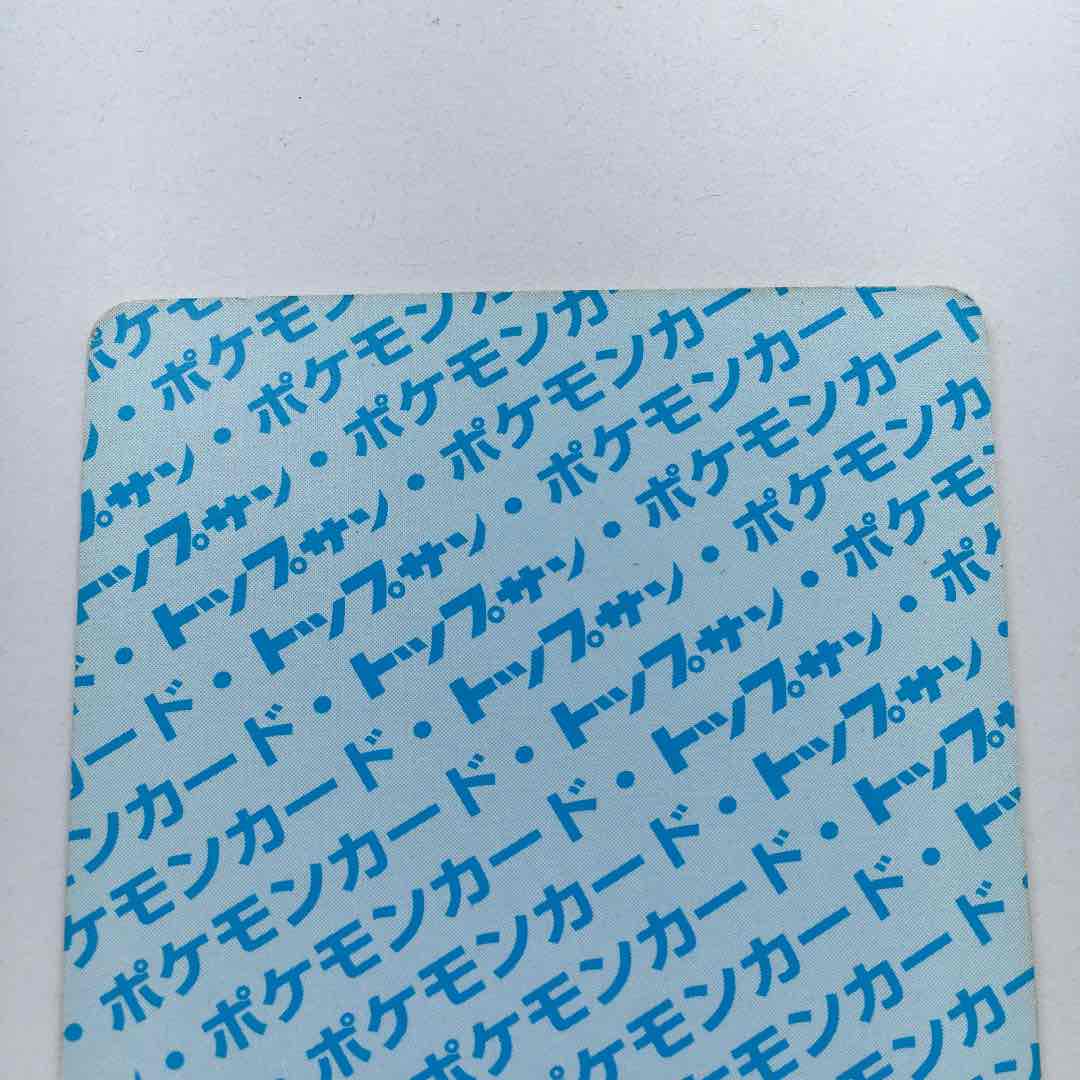 ポケモ
ン・ポケモン
プサン・ポケモンカ
トップサン・ポケモンカ
ド・トップサン・ポケモンカード
カード・トップサン・ポケモンカード
ンカード・トップサン・ポケモンカード
ケモンカード・トップサン・ポケモンカ
・ポケモンカード・トップサン・ポケモ
・ポケモンカード・トップサン・ポケ
ポケモンカード・トップサン・
ポケモンカード・トップサ
ケモンカード・トッ
モンカード・
ンカー